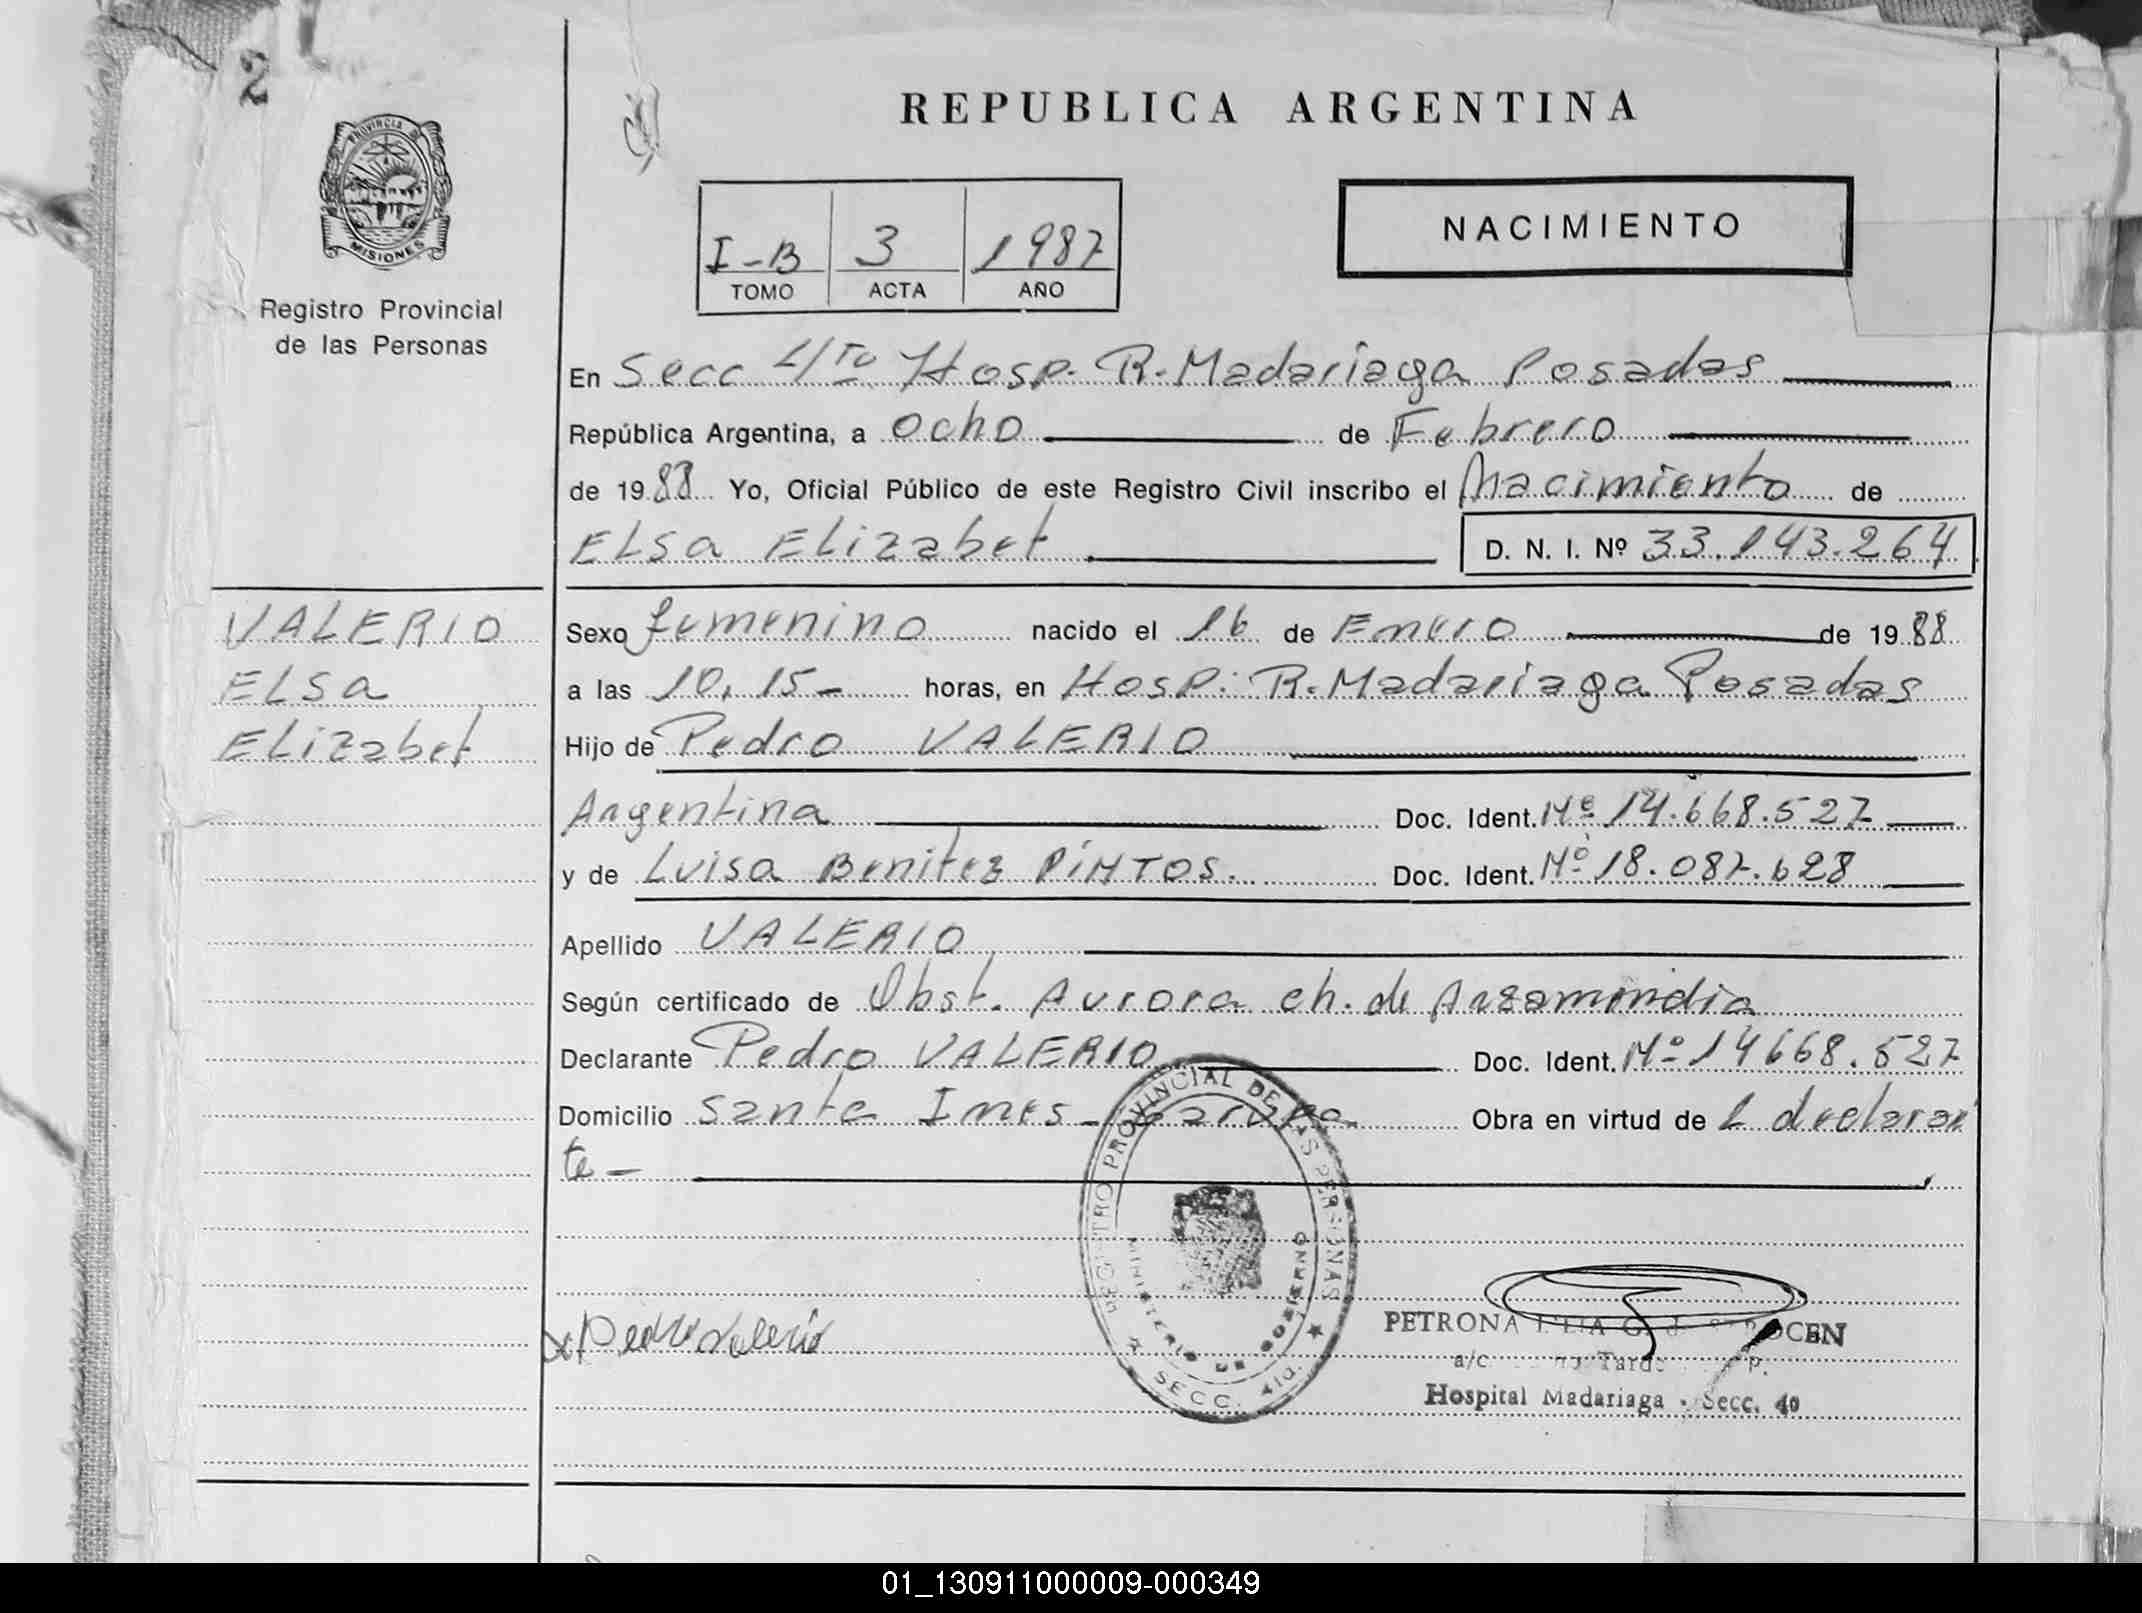 2
REPUBLICA ARGENTINA
PROVINCIA DE
MISIONES
Registro Provincial
de las Personas
I-B 3 1987
TOMO ACTA AÑO
NACIMIENTO
En Secc 4/ta Hosp. R. Madariaga Posadas
República Argentina, a ocho de Febrero
de 1988 Yo, Oficial Público de este Registro Civil inscribo el Nacimiento de
ELSa ELizabet D. N. I. Nº 33.143.264
VALERIO
ELSa
ELizabet
Sexo femenino nacido el 16 de Enero de 1988
a las 10,15- horas, en Hosp. R. Madariaga Posadas
Hijo de Pedro VALERIO
Argentina Doc. Ident. Nº 14.668.527
y de Luisa Benitez PiNTOS. Doc. Ident. Nº 18.087.628
Apellido VALERIO
Según certificado de Obst. Aurora ch. de Arzamendia
Declarante Pedro VALERIO Doc. Ident. Nº 14668.527
Domicilio Santa Ines - Garupa Obra en virtud de L declaran
te-
REGISTRO PROVINCIAL DE LAS PERSONAS
MINISTERIO DE GOBIERNO
SECC. 4ta.
x Pedro Valerio
PETRONA
a/c
Hospital Madariaga - Secc. 4a
01_130911000009-000349